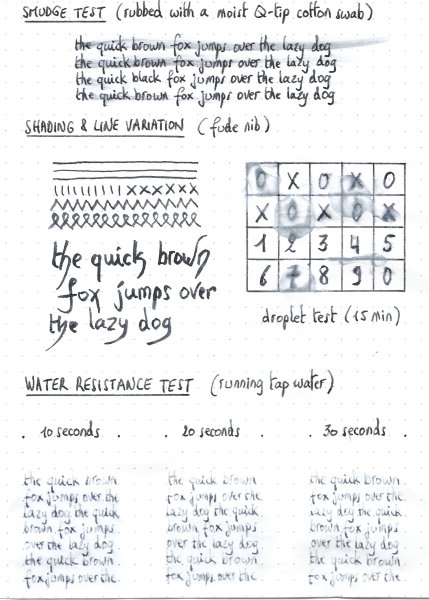 SMUDGE TEST (rubbed with a moist Q-tip cotton swab)
the quick brown fox jumps over the lazy dog
the quick brown fox jumps over the lazy dog
the quick black fox jumps over the lazy dog
the quick brown fox jumps over the lazy dog
SHADING & LINE VARIATION (fude nib)
the quick brown
fox jumps over
the lazy dog
O X O X O
X O X O X
1 2 3 4 5
6 7 8 9 0
droplet test (15 min)
WATER RESISTANCE TEST (running tap water)
. 10 seconds . 20 seconds . 30 seconds .
the quick brown
fox jumps over the
lazy dog the quick
brown fox jumps
over the lazy dog
the quick brown
fox jumps over the
the quick brown
fox jumps over the
lazy dog the quick
brown fox jumps
over the lazy dog
the quick brown
fox jumps over the
the quick brown
fox jumps over the
lazy dog the quick
brown fox jumps
over the lazy dog
the quick brown
fox jumps over the